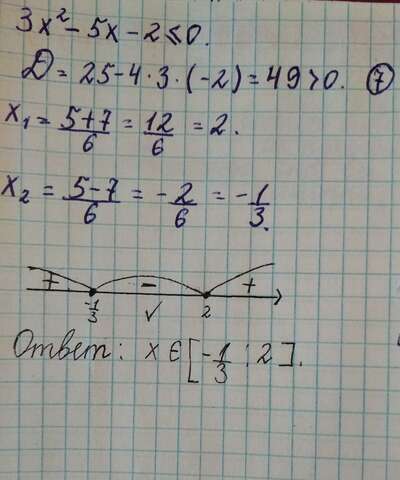 3x² - 5x - 2 ≤ 0.
D = 25 - 4 · 3 · (-2) = 49 > 0. (7)
x₁ = (5+7)/6 = 12/6 = 2.
x₂ = (5-7)/6 = -2/6 = -1/3.
+ - +
-1/3 ✓ 2
Ответ: x ∈ [-1/3 ; 2].